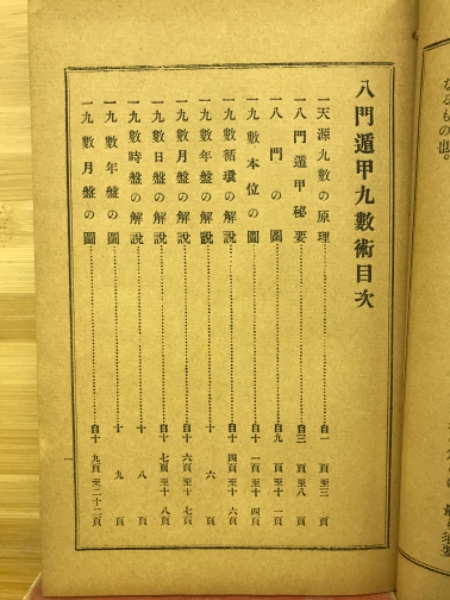 八門遁甲九數術目次
一天源九數の原理 自一頁至三頁
一八門遁甲秘要 自三頁至八頁
一八門の圖 自九頁至十一頁
一九數本位の圖 自十一頁至十四頁
一九數循環の解説 自十四頁至十六頁
一九數年盤の解説 十六頁
一九數月盤の解説 自十六頁至十七頁
一九數日盤の解説 自十七頁至十八頁
一九數時盤の解説 十八頁
一九數年盤の圖 十九頁
一九數月盤の圖 自十九頁至二十二頁
なるもの也。